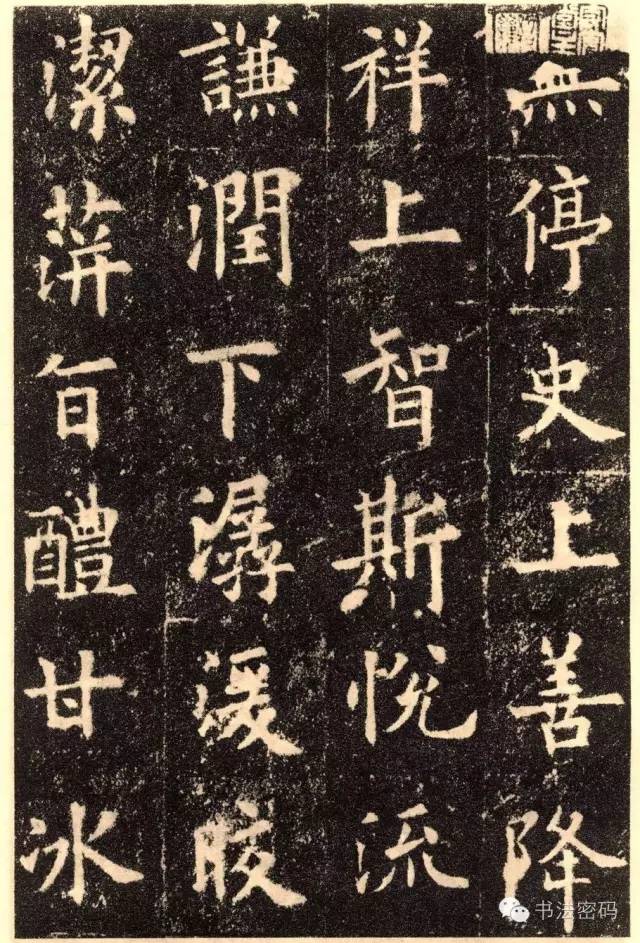 無停史上善降
祥上智斯悦流
謙潤下潺湲皎
潔蓱旨醴甘冰
书法密码